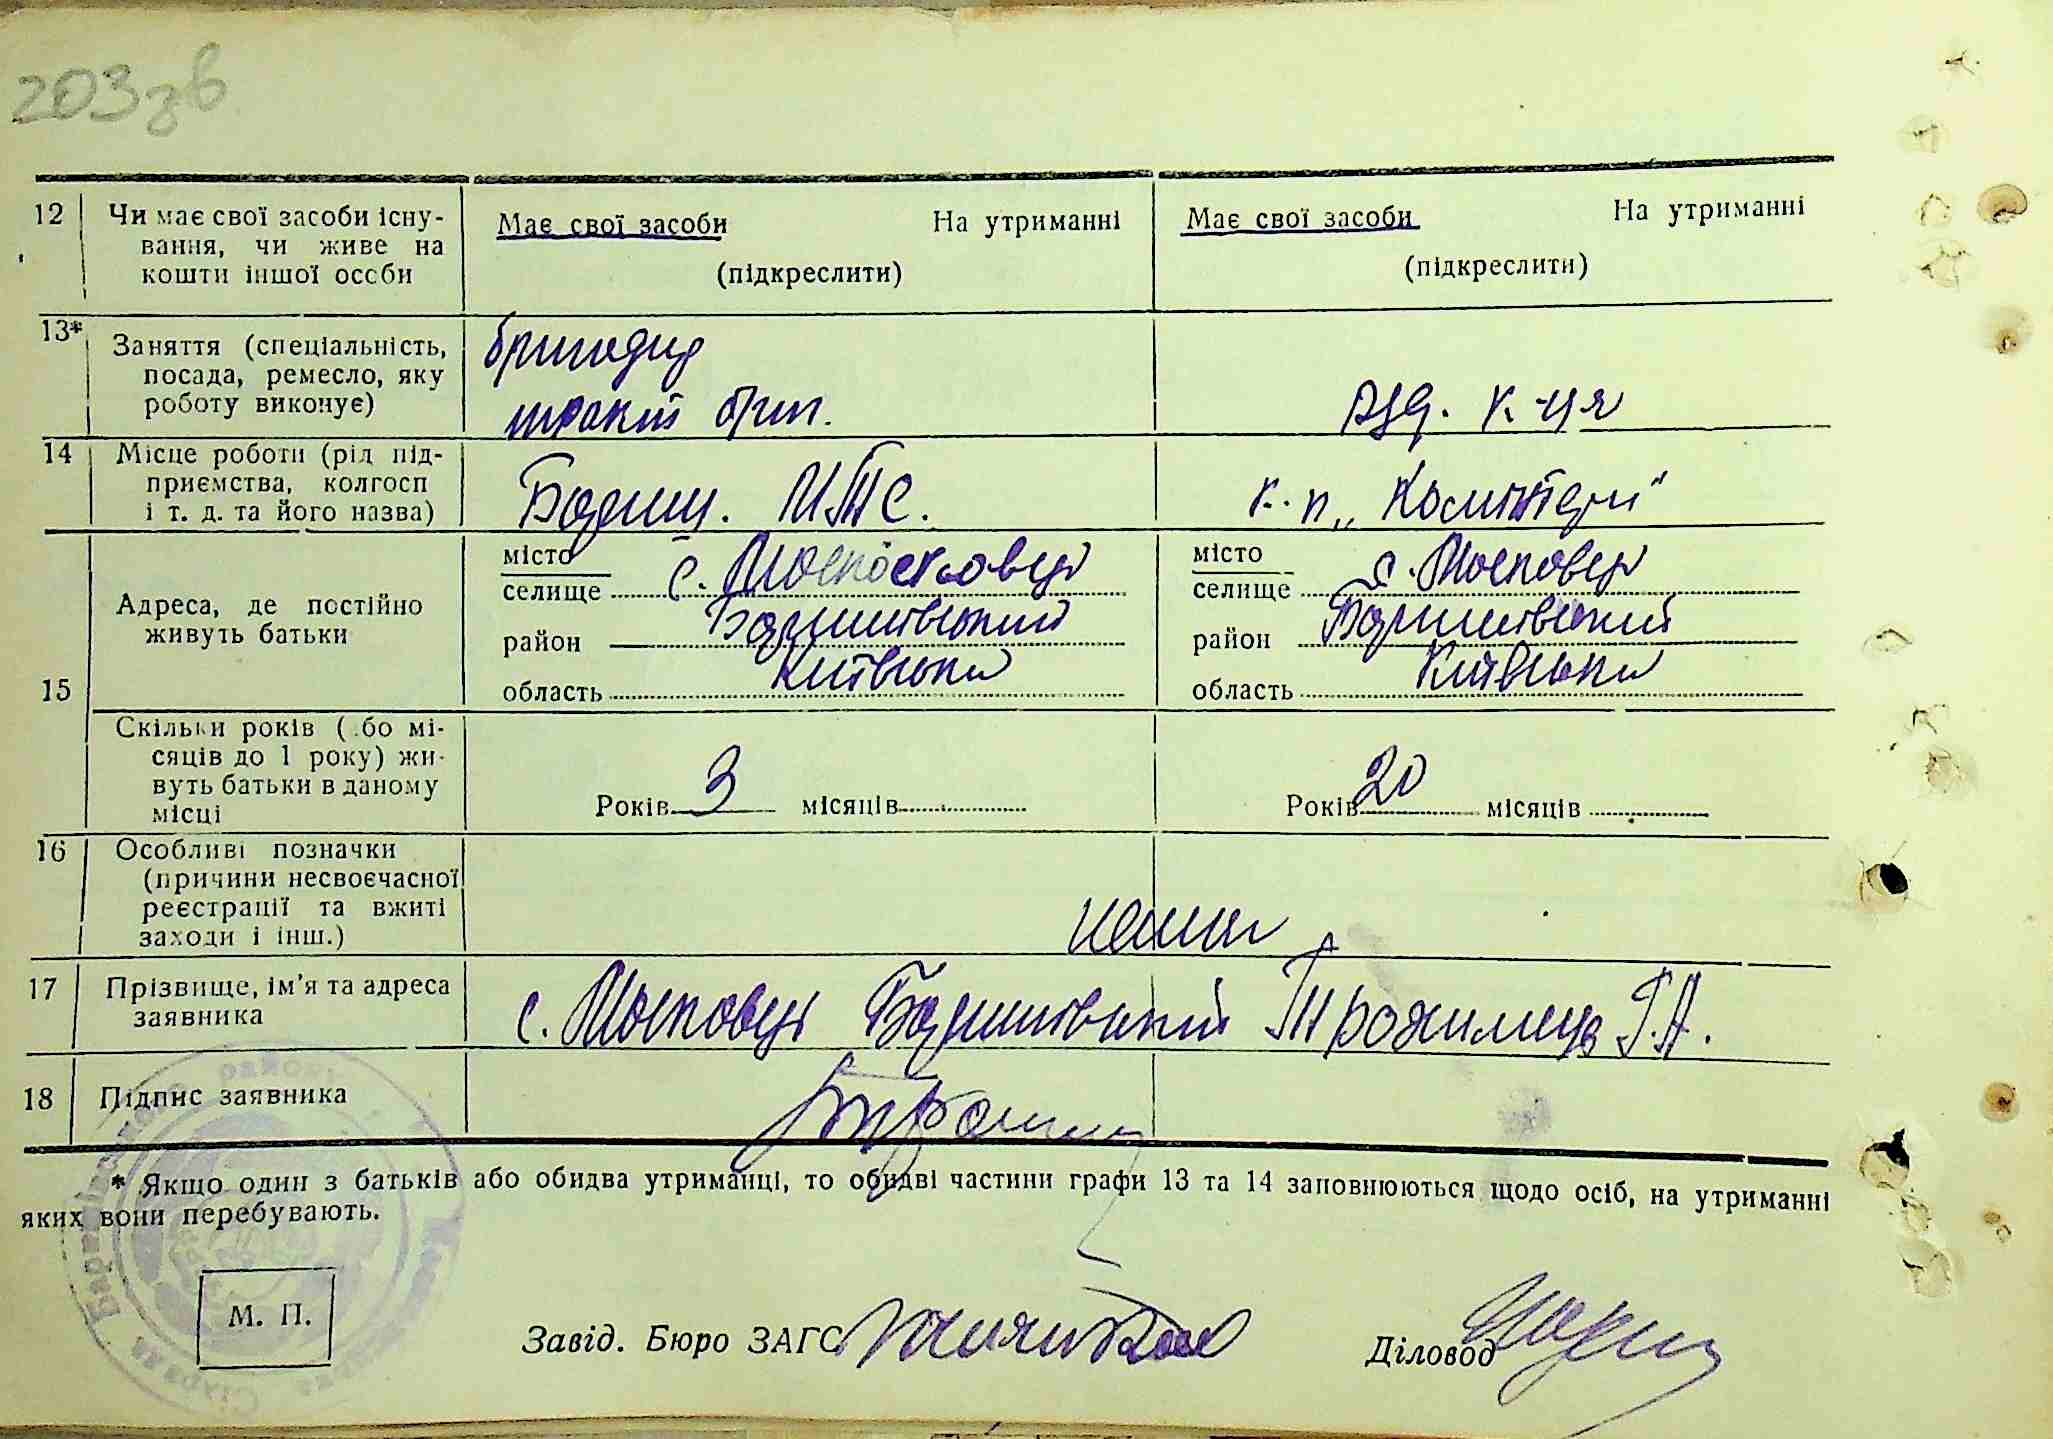 203зв
12 Чи має свої засоби існу-
вання, чи живе на
кошти іншої особи
Має свої засоби На утриманні
(підкреслити)
Має свої засоби На утриманні
(підкреслити)
13* Заняття (спеціальність,
посада, ремесло, яку
роботу виконує)
бригадир
тракт. бриг.
ряд. к-ця
14 Місце роботи (рід під-
приємства, колгосп
і т. д. та його назва)
Бориш. МТС.
к-п „Комінтерн"
15
Адреса, де постійно
живуть батьки
місто
селище с.
район Баришівський
область Київська
місто
селище с. Масківці
район Баришівський
область Київська
Скільки років (або мі-
сяців до 1 року) жи-
вуть батьки в даному
місці
Років 3 місяців
Років 20 місяців
16 Особливі позначки
(причини несвоєчасної
реєстрації та вжиті
заходи і інш.)
немає
17 Прізвище, ім'я та адреса
заявника
с. Масківці Баришівський Г. А.
18 Підпис заявника
* Якщо один з батьків або обидва утриманці, то обидві частини графи 13 та 14 заповнюються щодо осіб, на утриманні
яких вони перебувають.
М. П.
Завід. Бюро ЗАГС
Діловод